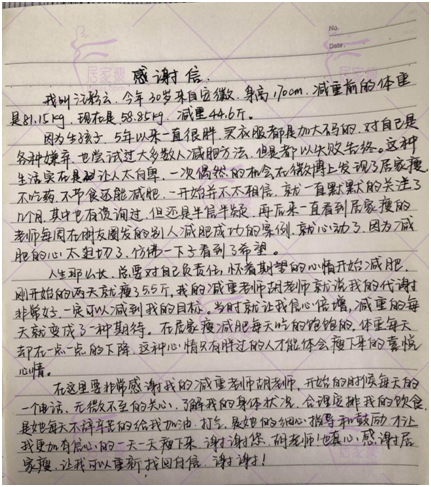 No.
Date.
感谢信.
我叫江 云, 今年30岁来自安徽, 身高170cm, 减重前的体重
是81.15kg, 现在是58.85kg, 减重44.6斤.
因为生孩子, 5年以来一直很胖, 买衣服都是加大码的, 对自己是
各种嫌弃, 也尝试过大多数人减肥方法, 但是都以失败告终, 这种
生活实在是让人不自卑, 一次偶然的机会在微博上发现了居家瘦,
不吃药, 不节食还能减肥, 一开始并不太相信, 就一直默默的关注了
几个月, 其中也有咨询过, 但还是半信半疑, 再后来一直看到居家瘦的
老师每周在朋友圈发的别人减肥成功的案例, 就心动了, 因为减
肥的心太迫切了, 仿佛一下子看到了希望.
人生那么长, 总要对自己负责任, 怀着期望的心情开始减肥,
刚开始的两天就瘦了5.5斤, 我的减重老师胡老师就说我的代谢
非常好, 一定可以减到我的目标, 当时就让我信心倍增, 减重的每
天就变成了一种期待, 在居家瘦减肥每天吃的饱饱的, 体重每天
却在一点一点的下降, 这种心情只有胖过的人才能体会瘦下来的喜悦
心情.
在这里要非常感谢我的减重老师胡老师, 开始的时候每天的
一个电话, 无微不至的关心, 了解我的身体状况, 合理安排我的饮食,
是她每天不辞辛苦的给我加油, 打气, 是她的细心指导和鼓励才让
我更加有信心的一天一天瘦下来, 谢谢您, 胡老师! 也真心感谢居
家瘦, 让我可以重新找回自信, 谢谢!